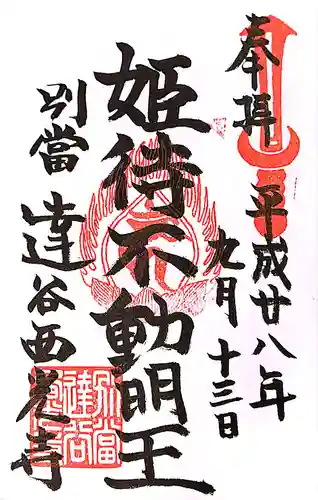 奉拝
平成廿八年
九月十三日
姫待不動明王
別當
達谷西光寺